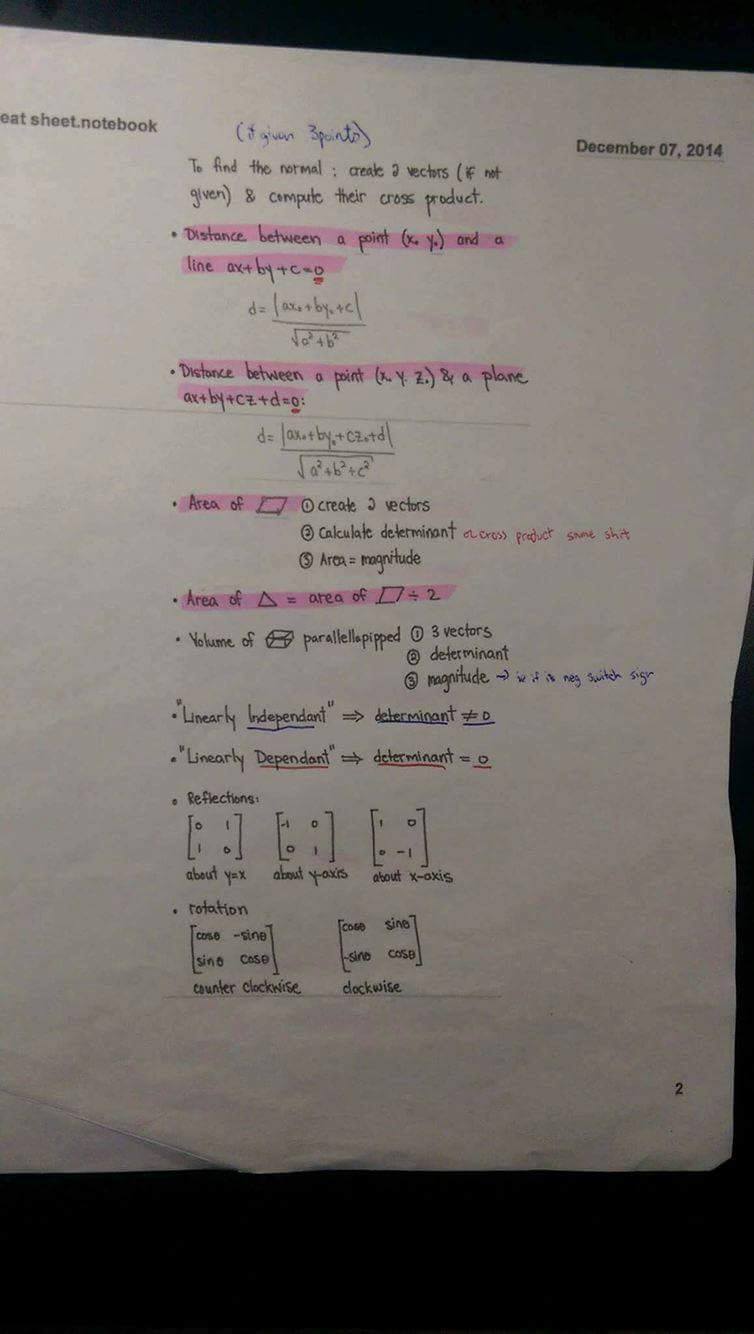 eat sheet.notebook
December 07, 2014
(if given 3 points)
To find the normal : create 2 vectors (if not
given) & compute their cross product.
• Distance between a point (x₀ y₀) and a
line ax+by+c=0
d= |ax₀+by₀+c|
√a²+b²
• Distance between a point (x₀ y₀ z₀) & a plane
ax+by+cz+d=0:
d= |ax₀+by₀+cz₀+d|
√a²+b²+c²
• Area of ▱ ① create 2 vectors
② Calculate determinant or cross product same shit
③ Area = magnitude
• Area of △ = area of ▱ ÷ 2
• Volume of parallellapipped ① 3 vectors
② determinant
③ magnitude → if is neg switch sign
• "Linearly Independant" ⇒ determinant ≠ 0
• "Linearly Dependant" ⇒ determinant = 0
• Reflections:
[0 1] [-1 0] [1 0]
[1 0] [0 1] [0 -1]
about y=x about y-axis about x-axis
• rotation
[cosθ -sinθ] [cosθ sinθ]
[sinθ cosθ] [-sinθ cosθ]
counter clockwise clockwise
2